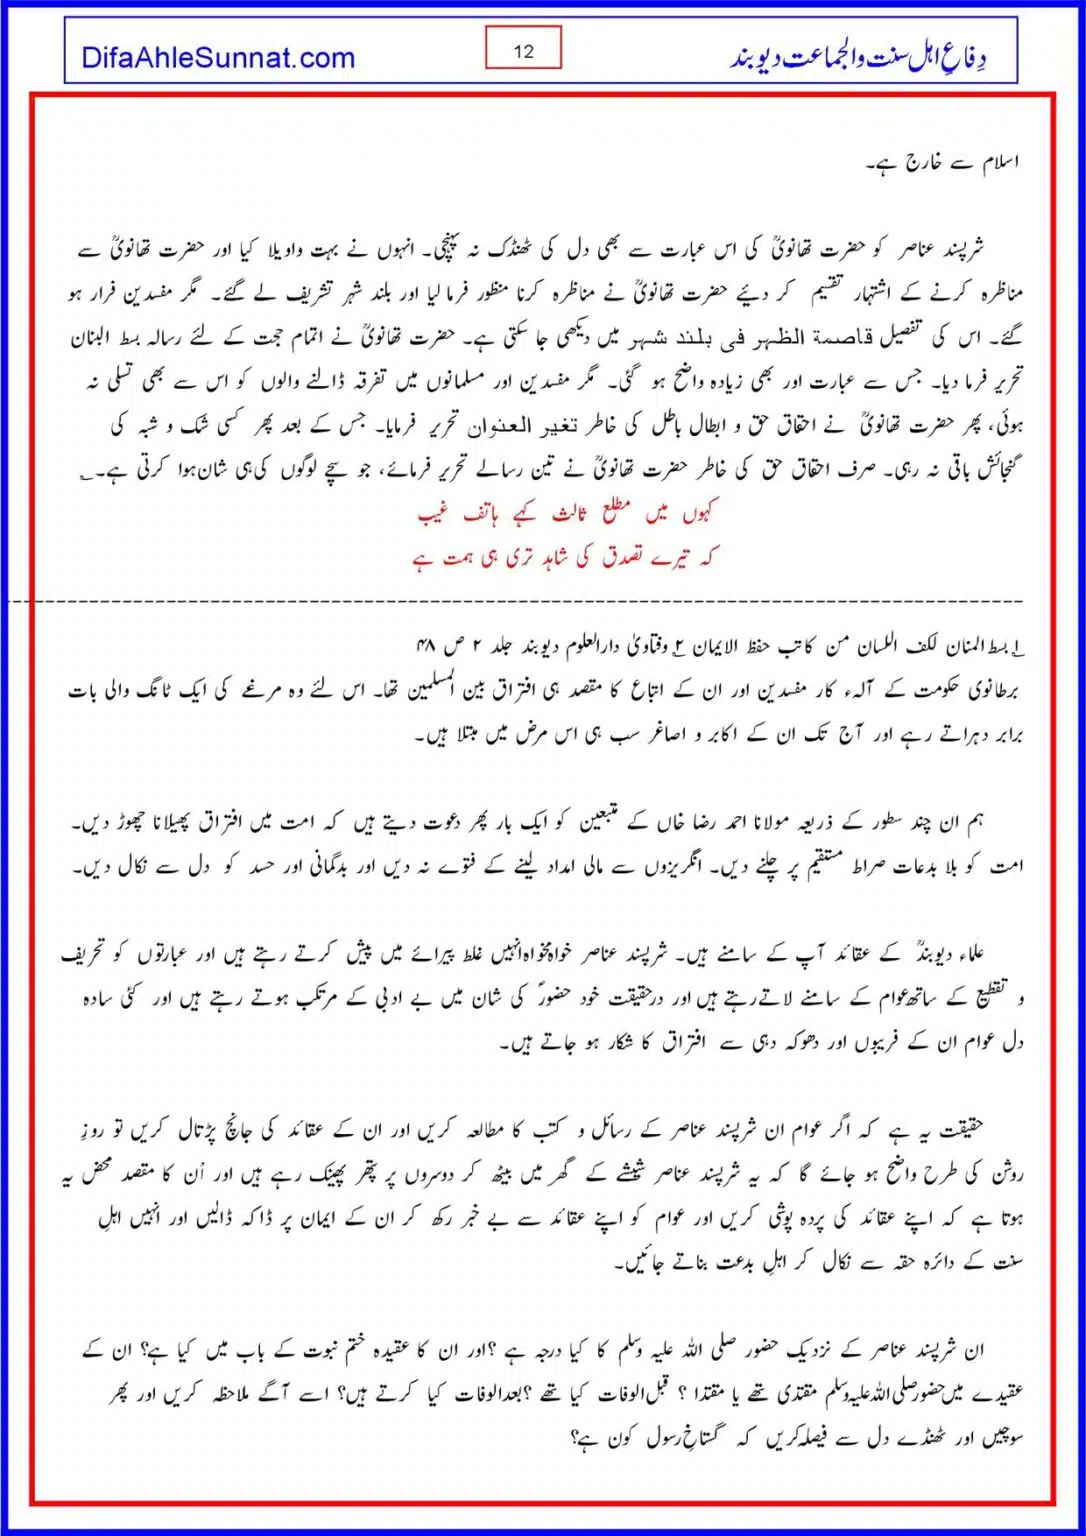 DifaAhleSunnat.com
12
دِفاعِ اہل سنت والجماعت دیوبند
اسلام سے خارج ہے۔
شرپسند عناصر کو حضرت تھانویؒ کی اس عبارت سے بھی دل کی ٹھنڈک نہ پہنچی۔ انہوں نے بہت واویلا کیا اور حضرت تھانویؒ سے
مناظرہ کرنے کے اشتہار تقسیم کر دیئے حضرت تھانویؒ نے مناظرہ کرنا منظور فرما لیا اور بلند شہر تشریف لے گئے۔ مگر مفسدین فرار ہو
گئے۔ اس کی تفصیل قاصمة الظہر فی بلند شہر میں دیکھی جا سکتی ہے۔ حضرت تھانویؒ نے اتمام حجت کے لئے رسالہ بسط البنان
تحریر فرما دیا۔ جس سے عبارت اور بھی زیادہ واضح ہو گئی۔ مگر مفسدین اور مسلمانوں میں تفرقہ ڈالنے والوں کو اس سے بھی تسلی نہ
ہوئی، پھر حضرت تھانویؒ نے احقاق حق و ابطال باطل کی خاطر تغیر العنوان تحریر فرمایا۔ جس کے بعد پھر کسی شک و شبہ کی
گنجائش باقی نہ رہی۔ صرف احقاق حق کی خاطر حضرت تھانویؒ نے تین رسالے تحریر فرمائے، جو سچے لوگوں کی ہی شان ہوا کرتی ہے۔؂
کہوں میں مطلع ثالث کہے ہاتف غیب
کہ تیرے تصدق کی شاہد تری ہی ہمت ہے
۱؂ بسط المنان لکف اللسان من کاتب حفظ الایمان ۲؂ وفتاویٰ دارالعلوم دیوبند جلد ۲ ص ۴۸
برطانوی حکومت کے آلہء کار مفسدین اور ان کے اتباع کا مقصد ہی افتراق بین المسلمین تھا۔ اس لئے وہ مرغے کی ایک ٹانگ والی بات
برابر دہراتے رہے اور آج تک ان کے اکابر و اصاغر سب ہی اس مرض میں مبتلا ہیں۔
ہم ان چند سطور کے ذریعہ مولانا احمد رضا خاں کے متبعین کو ایک بار پھر دعوت دیتے ہیں کہ امت میں افتراق پھیلانا چھوڑ دیں۔
امت کو بلا بدعات صراط مستقیم پر چلنے دیں۔ انگریزوں سے مالی امداد لینے کے فتوے نہ دیں اور بدگمانی اور حسد کو دل سے نکال دیں۔
علماء دیوبندؒ کے عقائد آپ کے سامنے ہیں۔ شرپسند عناصر خواہ مخواہ انہیں غلط پیرائے میں پیش کرتے رہتے ہیں اور عبارتوں کو تحریف
و تقطیع کے ساتھ عوام کے سامنے لاتے رہتے ہیں اور درحقیقت خود حضورؐ کی شان میں بے ادبی کے مرتکب ہوتے رہتے ہیں اور کئی سادہ
دل عوام ان کے فریبوں اور دھوکہ دہی سے افتراق کا شکار ہو جاتے ہیں۔
حقیقت یہ ہے کہ اگر عوام ان شرپسند عناصر کے رسائل و کتب کا مطالعہ کریں اور ان کے عقائد کی جانچ پڑتال کریں تو روزِ
روشن کی طرح واضح ہو جائے گا کہ یہ شرپسند عناصر شیشے کے گھر میں بیٹھ کر دوسروں پر پتھر پھینک رہے ہیں اور اُن کا مقصد محض یہ
ہوتا ہے کہ اپنے عقائد کی پردہ پوشی کریں اور عوام کو اپنے عقائد سے بے خبر رکھ کر ان کے ایمان پر ڈاکہ ڈالیں اور انہیں اہلِ
سنت کے دائرہ حقہ سے نکال کر اہلِ بدعت بناتے جائیں۔
ان شرپسند عناصر کے نزدیک حضور صلی اللہ علیہ وسلم کا کیا درجہ ہے ؟اور ان کا عقیدہ ختم نبوت کے باب میں کیا ہے؟ ان کے
عقیدے میں حضور صلی اللہ علیہ وسلم مقتدی تھے یا مقتدا ؟ قبل الوفات کیا تھے ؟بعد الوفات کیا کرتے ہیں؟ اسے آگے ملاحظہ کریں اور پھر
سوچیں اور ٹھنڈے دل سے فیصلہ کریں کہ گستاخِ رسول کون ہے؟